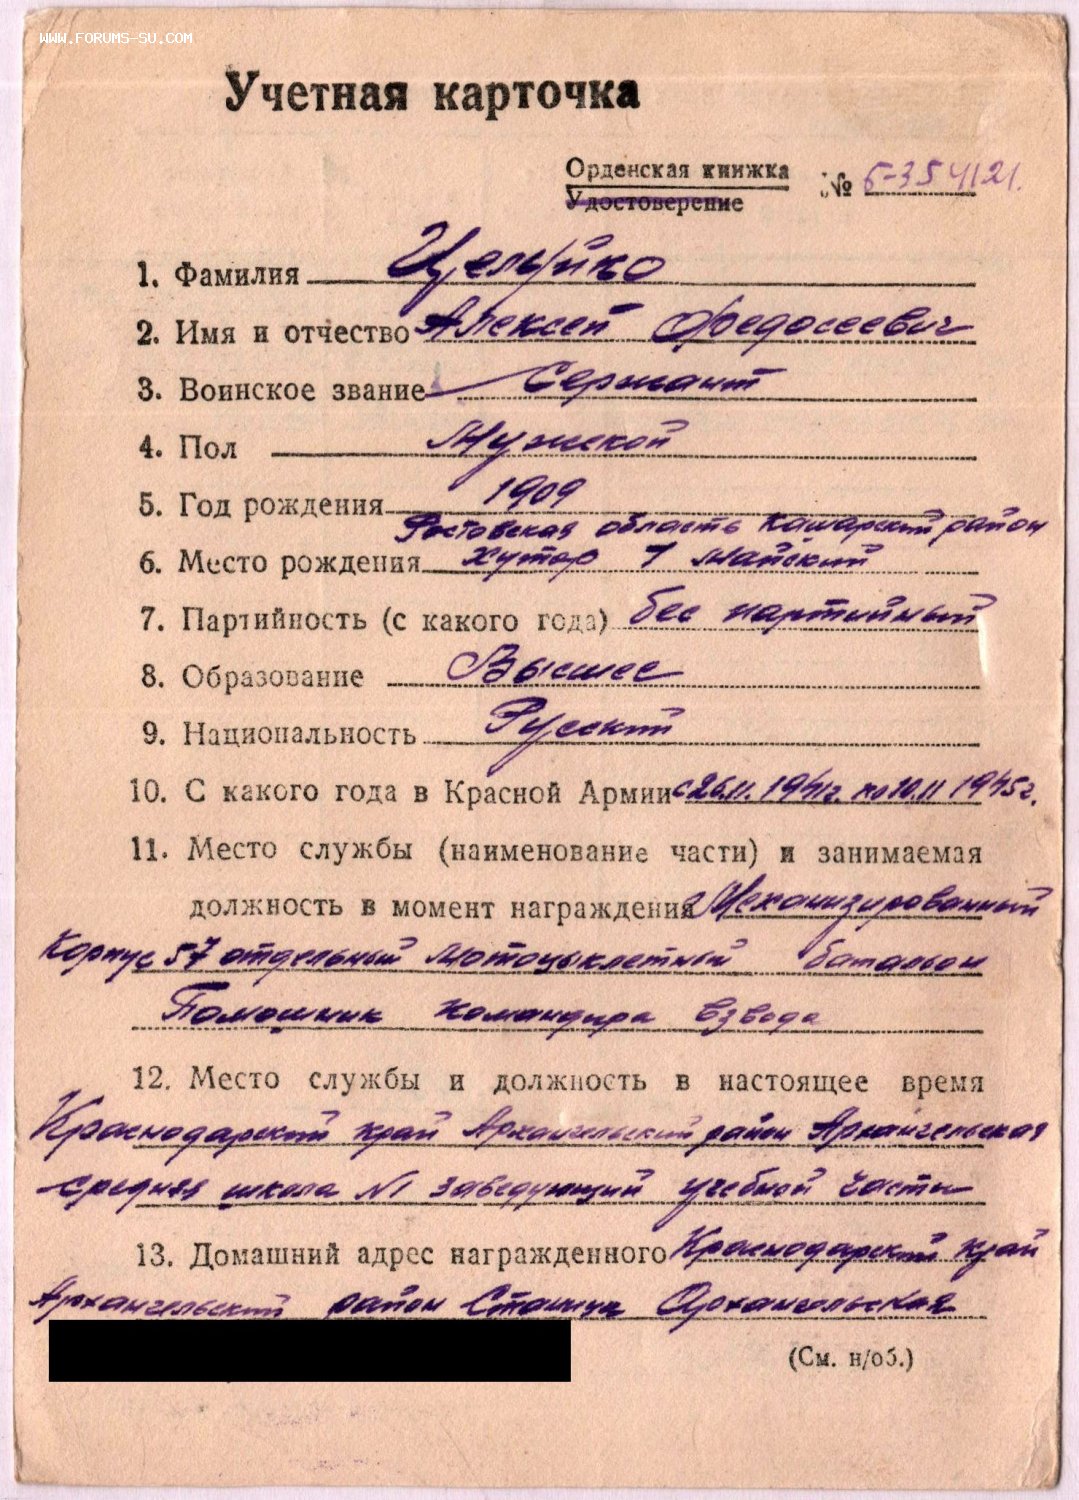 WWW.FORUMS-SU.COM
Учетная карточка
Орденская книжка № Б-354121.
Удостоверение
1. Фамилия Целуйко
2. Имя и отчество Алексей Федосеевич
3. Воинское звание Сержант
4. Пол Мужской
5. Год рождения 1909
Ростовская область Кашарский район
6. Место рождения Хутор 1 Майский
7. Партийность (с какого года) бес партийный
8. Образование Высшее
9. Национальность Русский
10. С какого года в Красной Армии с 26.II. 1941г. по 10.II 1945г.
11. Место службы (наименование части) и занимаемая
должность в момент награждения Механизированный
Корпус 57 отдельный мотоцыклетный батальон
Помошник командира взвода
12. Место службы и должность в настоящее время
Краснодарский край Архангельский район Архангельская
средняя школа №1 заведующий учебной части
13. Домашний адрес награжденного Краснодарский край
Архангельский район Станица Архангельская
(См. н/об.)